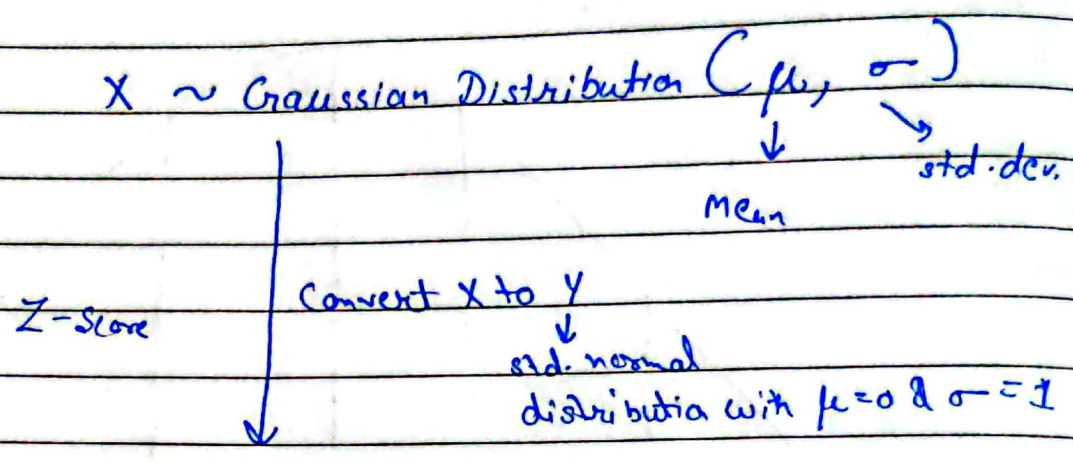 X ~ Gaussian Distribution (μ, σ)
std. dev.
Mean
Convert X to Y
Z-Score
std. normal
distributio with μ=0 & σ=1